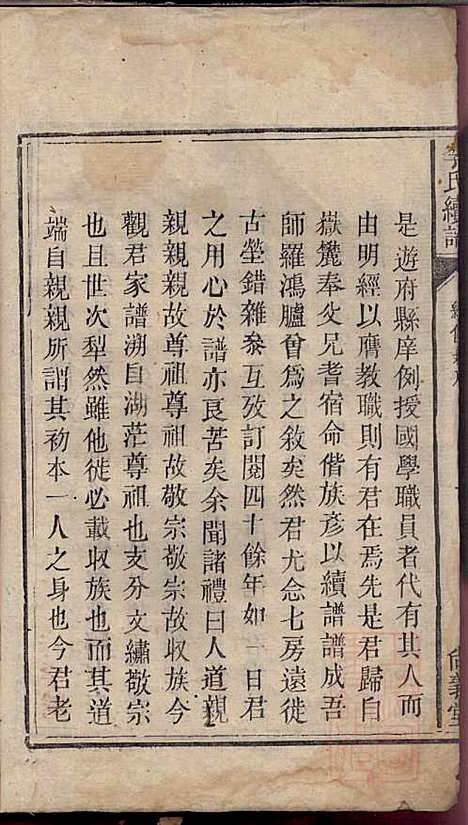 氏續譜
尚義堂
是遊府縣庠例授國學職員者代有其人而
由明經以膺教職則有君在焉先是君歸自
嶽麓奉父兄耆宿命偕族彦以續譜譜成吾
師羅鴻臚曾爲之敘矣然君尤念七房遠徙
古塋錯雜叅互攷訂閱四十餘年如一日君
之用心於譜亦良苦矣余聞諸禮曰人道親
親親親故尊祖尊祖故敬宗敬宗故收族今
觀君家譜溯自湖茫尊祖也支分文繡敬宗
也且世次犁然雖他徙必載収族也而其道
端自親親所謂其初本一人之身也今君老